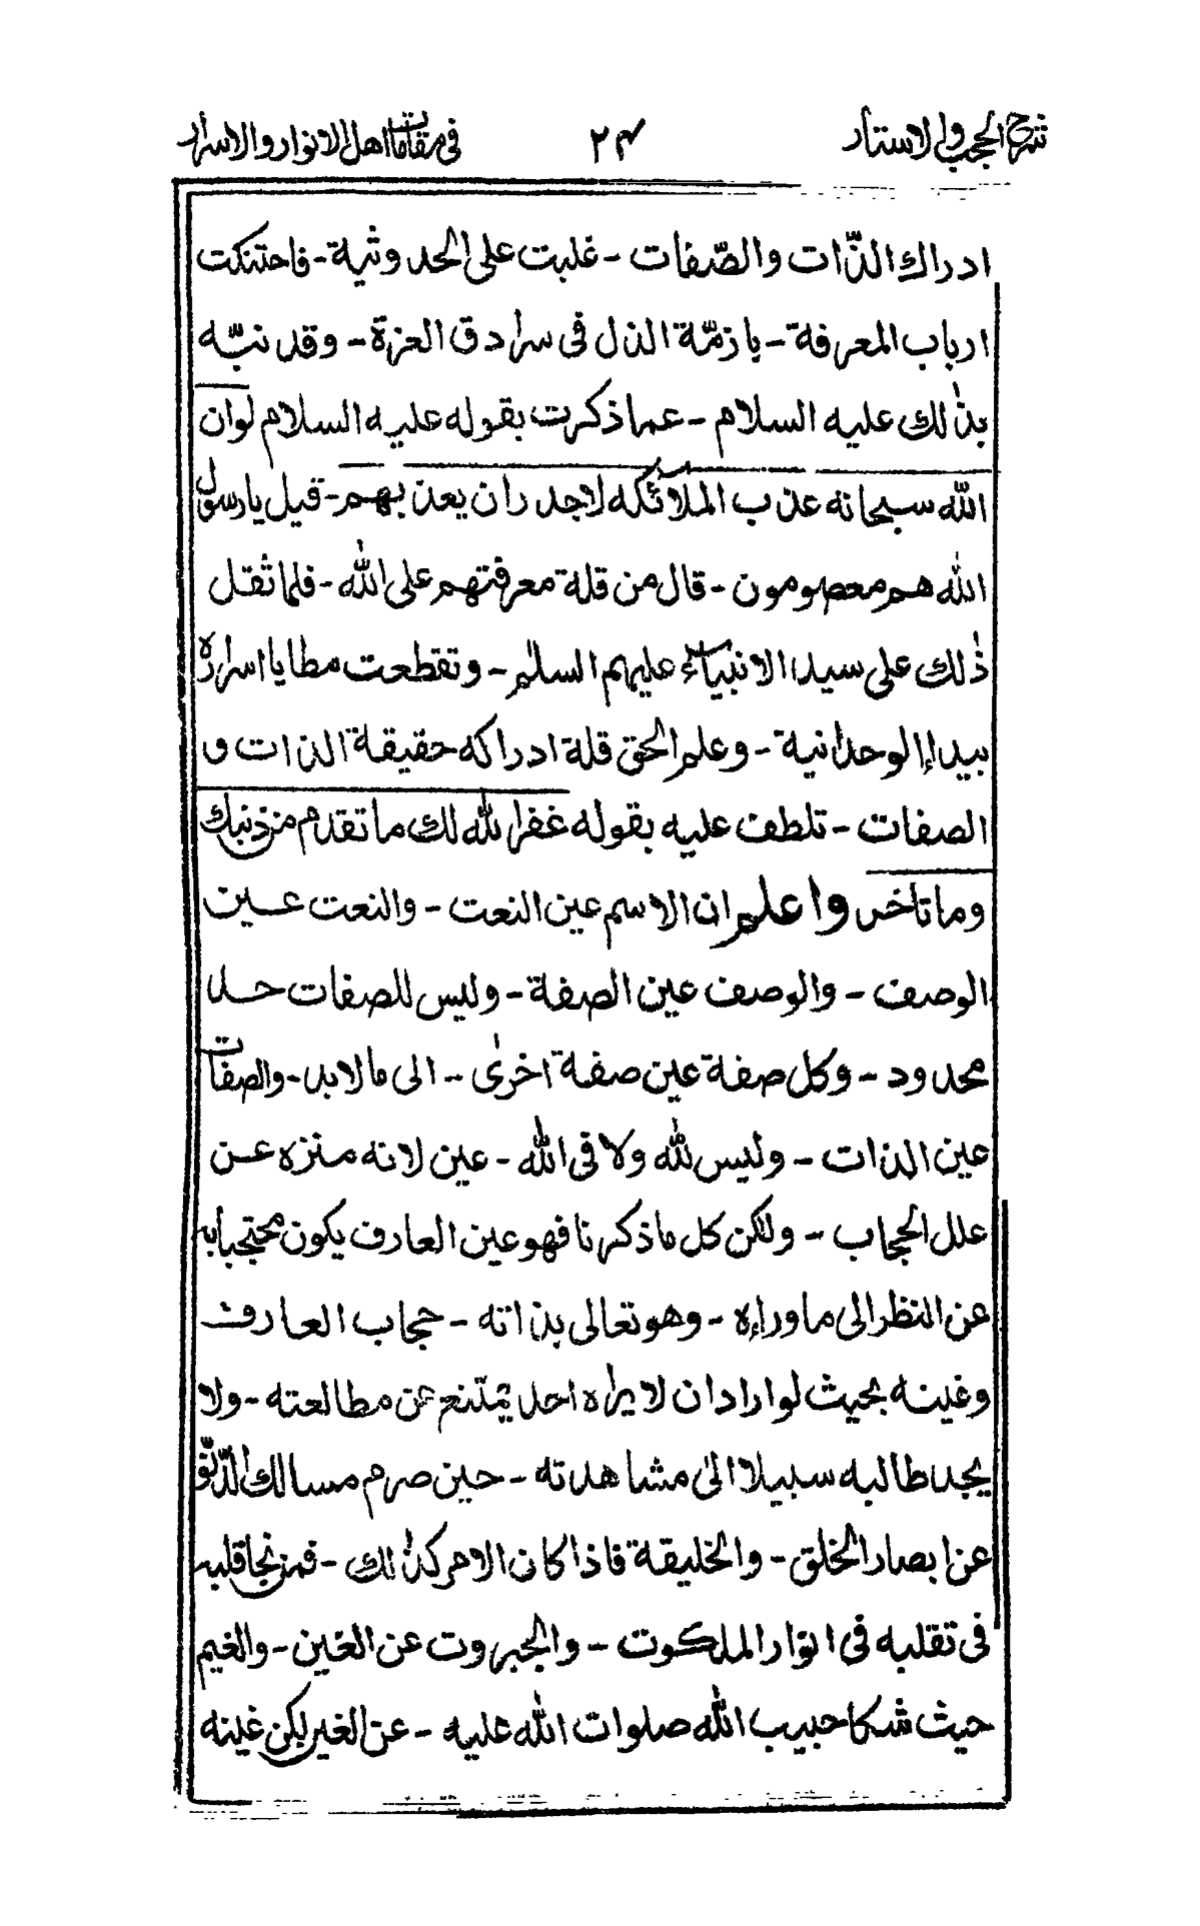 شرح الحجب والاستار ٢٤ فی مقامات اهل الانوار والاسرار
ادراك الذّات والصّفات - غلبت على الحدوثية - فاحتنكت
ارباب المعرفة - بازمّة الذل فى سرادق العزة - وقد نبّه
بذٰلك عليه السلام - عما ذكرت بقوله عليه السلام لوان
الله سبحانه عذب الملائكه لاجدر ان يعذبهم - قيل يا رسول
الله هم معصومون - قال من قلة معرفتهم على الله - فلما ثقل
ذٰلك على سيد الانبياء عليهم السلٰم - وتقطعت مطايا اسراره
ببيداء الوحدانية - وعلم الحق قلة ادراكه حقيقة الذات و
الصفات - تلطف عليه بقوله غفر الله لك ما تقدم من ذنبك
وما تاخر واعلم ان الاسم عين النعت - والنعت عين
الوصف - والوصف عين الصفة - وليس للصفات حد
محدود - وكل صفة عين صفة اخرىٰ - الى ما لابد - والصفات
عين الذات - وليس لله ولا فى الله - عين لانه منزه عن
علل الحجاب - ولكن كل ما ذكرنا فهو عين العارف يكون محتجبا به
عن النظر الى ما وراءه - وهو تعالى بذاته - حجاب العارف
وغينه بحيث لو اراد ان لا يراه احد يمتنع عن مطالعته - ولا
يجد طالبه سبيلا الىٰ مشاهدته - حين صرم مسالك الدّنوّ
عن ابصار الخلق - والخليقة فاذا كان الامر كذٰلك - فمن نجا قلبه
فى تقلبه فى انوار الملكوت - والجبروت عن الغين - والغيم
حيث شكا حبيب الله صلوات الله عليه - عن الغير لكن غينه